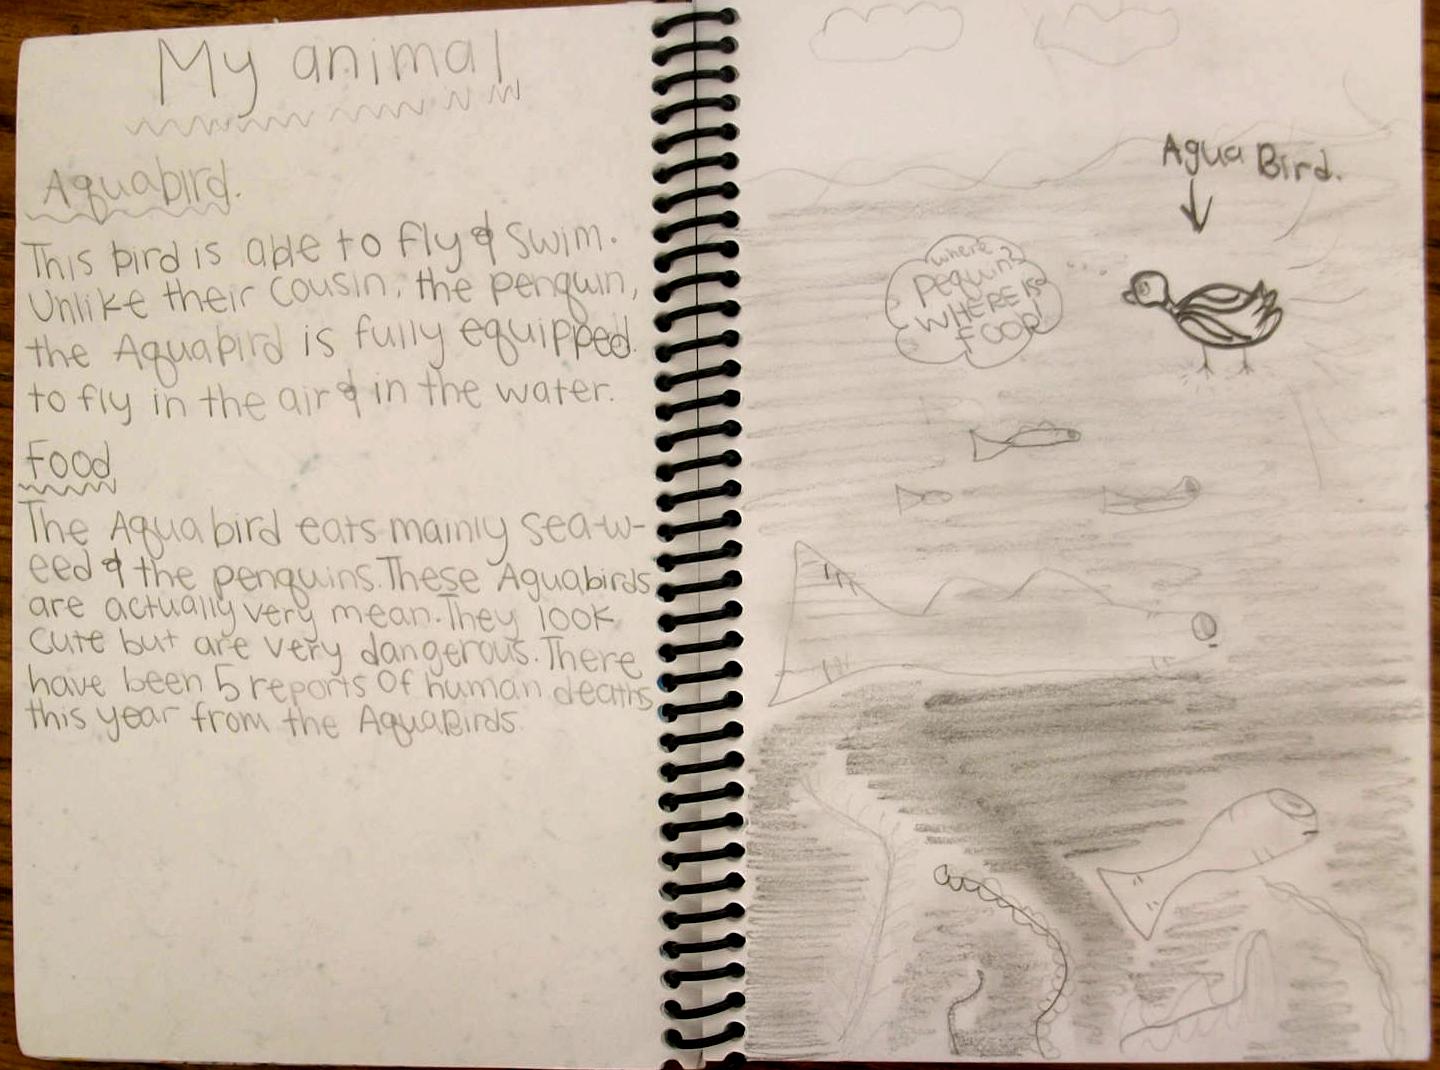 My animal
Aquabird.
This bird is able to fly & swim.
Unlike their cousin, the penquin,
the Aquabird is fully equipped
to fly in the air & in the water.
Food
The Aquabird eats mainly sea-w-
eed & the penquins. These Aquabirds
are actually very mean. They look
cute but are very dangerous. There
have been 5 reports of human deaths
this year from the AquaBirds.
Aqua Bird.
where
Pequin?
WHERE IS
FOOD!